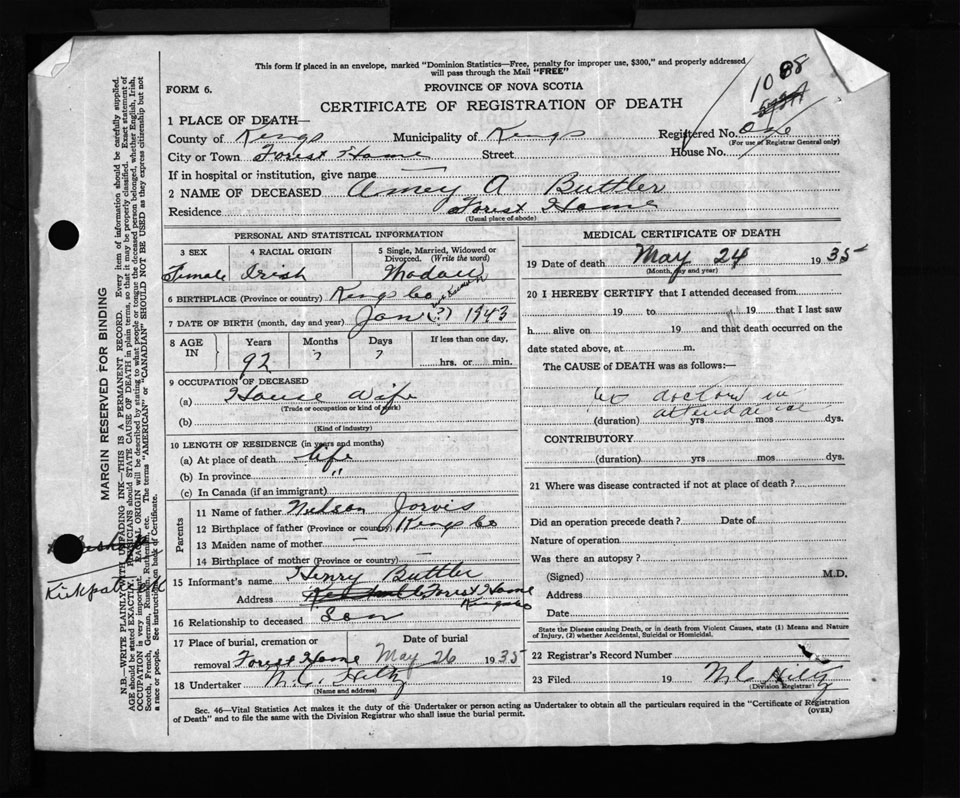 This form if placed in an envelope, marked "Dominion Statistics—Free, penalty for improper use, $300," and properly addressed
will pass through the Mail "FREE"
FORM 6.
PROVINCE OF NOVA SCOTIA
CERTIFICATE OF REGISTRATION OF DEATH
1088
1 PLACE OF DEATH—
County of Kings Municipality of Kings Registered No. One
(For use of Registrar General only)
City or Town Forest Home Street House No.
If in hospital or institution, give name —
2 NAME OF DECEASED Amey A Buttler
Residence Forest Home
(Usual place of abode)
PERSONAL AND STATISTICAL INFORMATION
3 SEX 4 RACIAL ORIGIN 5 Single, Married, Widowed or
Divorced. (Write the word)
Female Irish
6 BIRTHPLACE (Province or country) Kings Co
7 DATE OF BIRTH (month, day and year) Jan (?) 1943
8 AGE IN Years Months Days If less than one day,
92 ? ? hrs. or min.
9 OCCUPATION OF DECEASED
(a) House Wife
(Trade or occupation or kind of work)
(b)
(Kind of industry)
10 LENGTH OF RESIDENCE (in years and months)
(a) At place of death life
(b) In province "
(c) In Canada (if an immigrant)
Parents
11 Name of father Nelson Jorvis
12 Birthplace of father (Province or country) Kings Co
13 Maiden name of mother —
14 Birthplace of mother (Province or country) —
15 Informant's name Henry Buttler
Address Forest Home
Kings Co
16 Relationship to deceased Son
17 Place of burial, cremation or Date of burial
removal Forest Home May 26 1935
18 Undertaker M.C. Hiltz
(Name and address)
MEDICAL CERTIFICATE OF DEATH
19 Date of death May 24 1935
(Month, day and year)
20 I HEREBY CERTIFY that I attended deceased from
19 to 19 that I last saw
h alive on 19 and that death occurred on the
date stated above, at m.
The CAUSE of DEATH was as follows:—
no doctors in
attendance
(duration) yrs mos dys.
CONTRIBUTORY
(duration) yrs mos dys.
21 Where was disease contracted if not at place of death?
Did an operation precede death? Date of
Nature of operation
Was there an autopsy?
(Signed) M.D.
Address
Date
State the Disease causing Death, or in death from Violent Causes, state (1) Means and Nature
of Injury, (2) whether Accidental, Suicidal or Homicidal.
22 Registrar's Record Number
23 Filed 19 M C Hiltz
(Division Registrar)
Sec. 46—Vital Statistics Act makes it the duty of the Undertaker or person acting as Undertaker to obtain all the particulars required in the "Certificate of Registration
of Death" and to file the same with the Division Registrar who shall issue the burial permit.
(OVER)
MARGIN RESERVED FOR BINDING
N.B.—WRITE PLAINLY WITH UNFADING INK—THIS IS A PERMANENT RECORD. Every item of information should be carefully supplied.
AGE should be stated EXACTLY. PHYSICIANS should STATE CAUSE OF DEATH in plain terms, so that it may be properly classified. Exact statement of
OCCUPATION is very important. RACIAL ORIGIN will be described by stating to what people or tongue the deceased person belonged, whether English, Irish,
Scotch, French, German, Russian, Ruthenian, etc. The terms "AMERICAN" or "CANADIAN" SHOULD NOT BE USED as they express citizenship but not
a race or people. See instructions on back of Certificate.